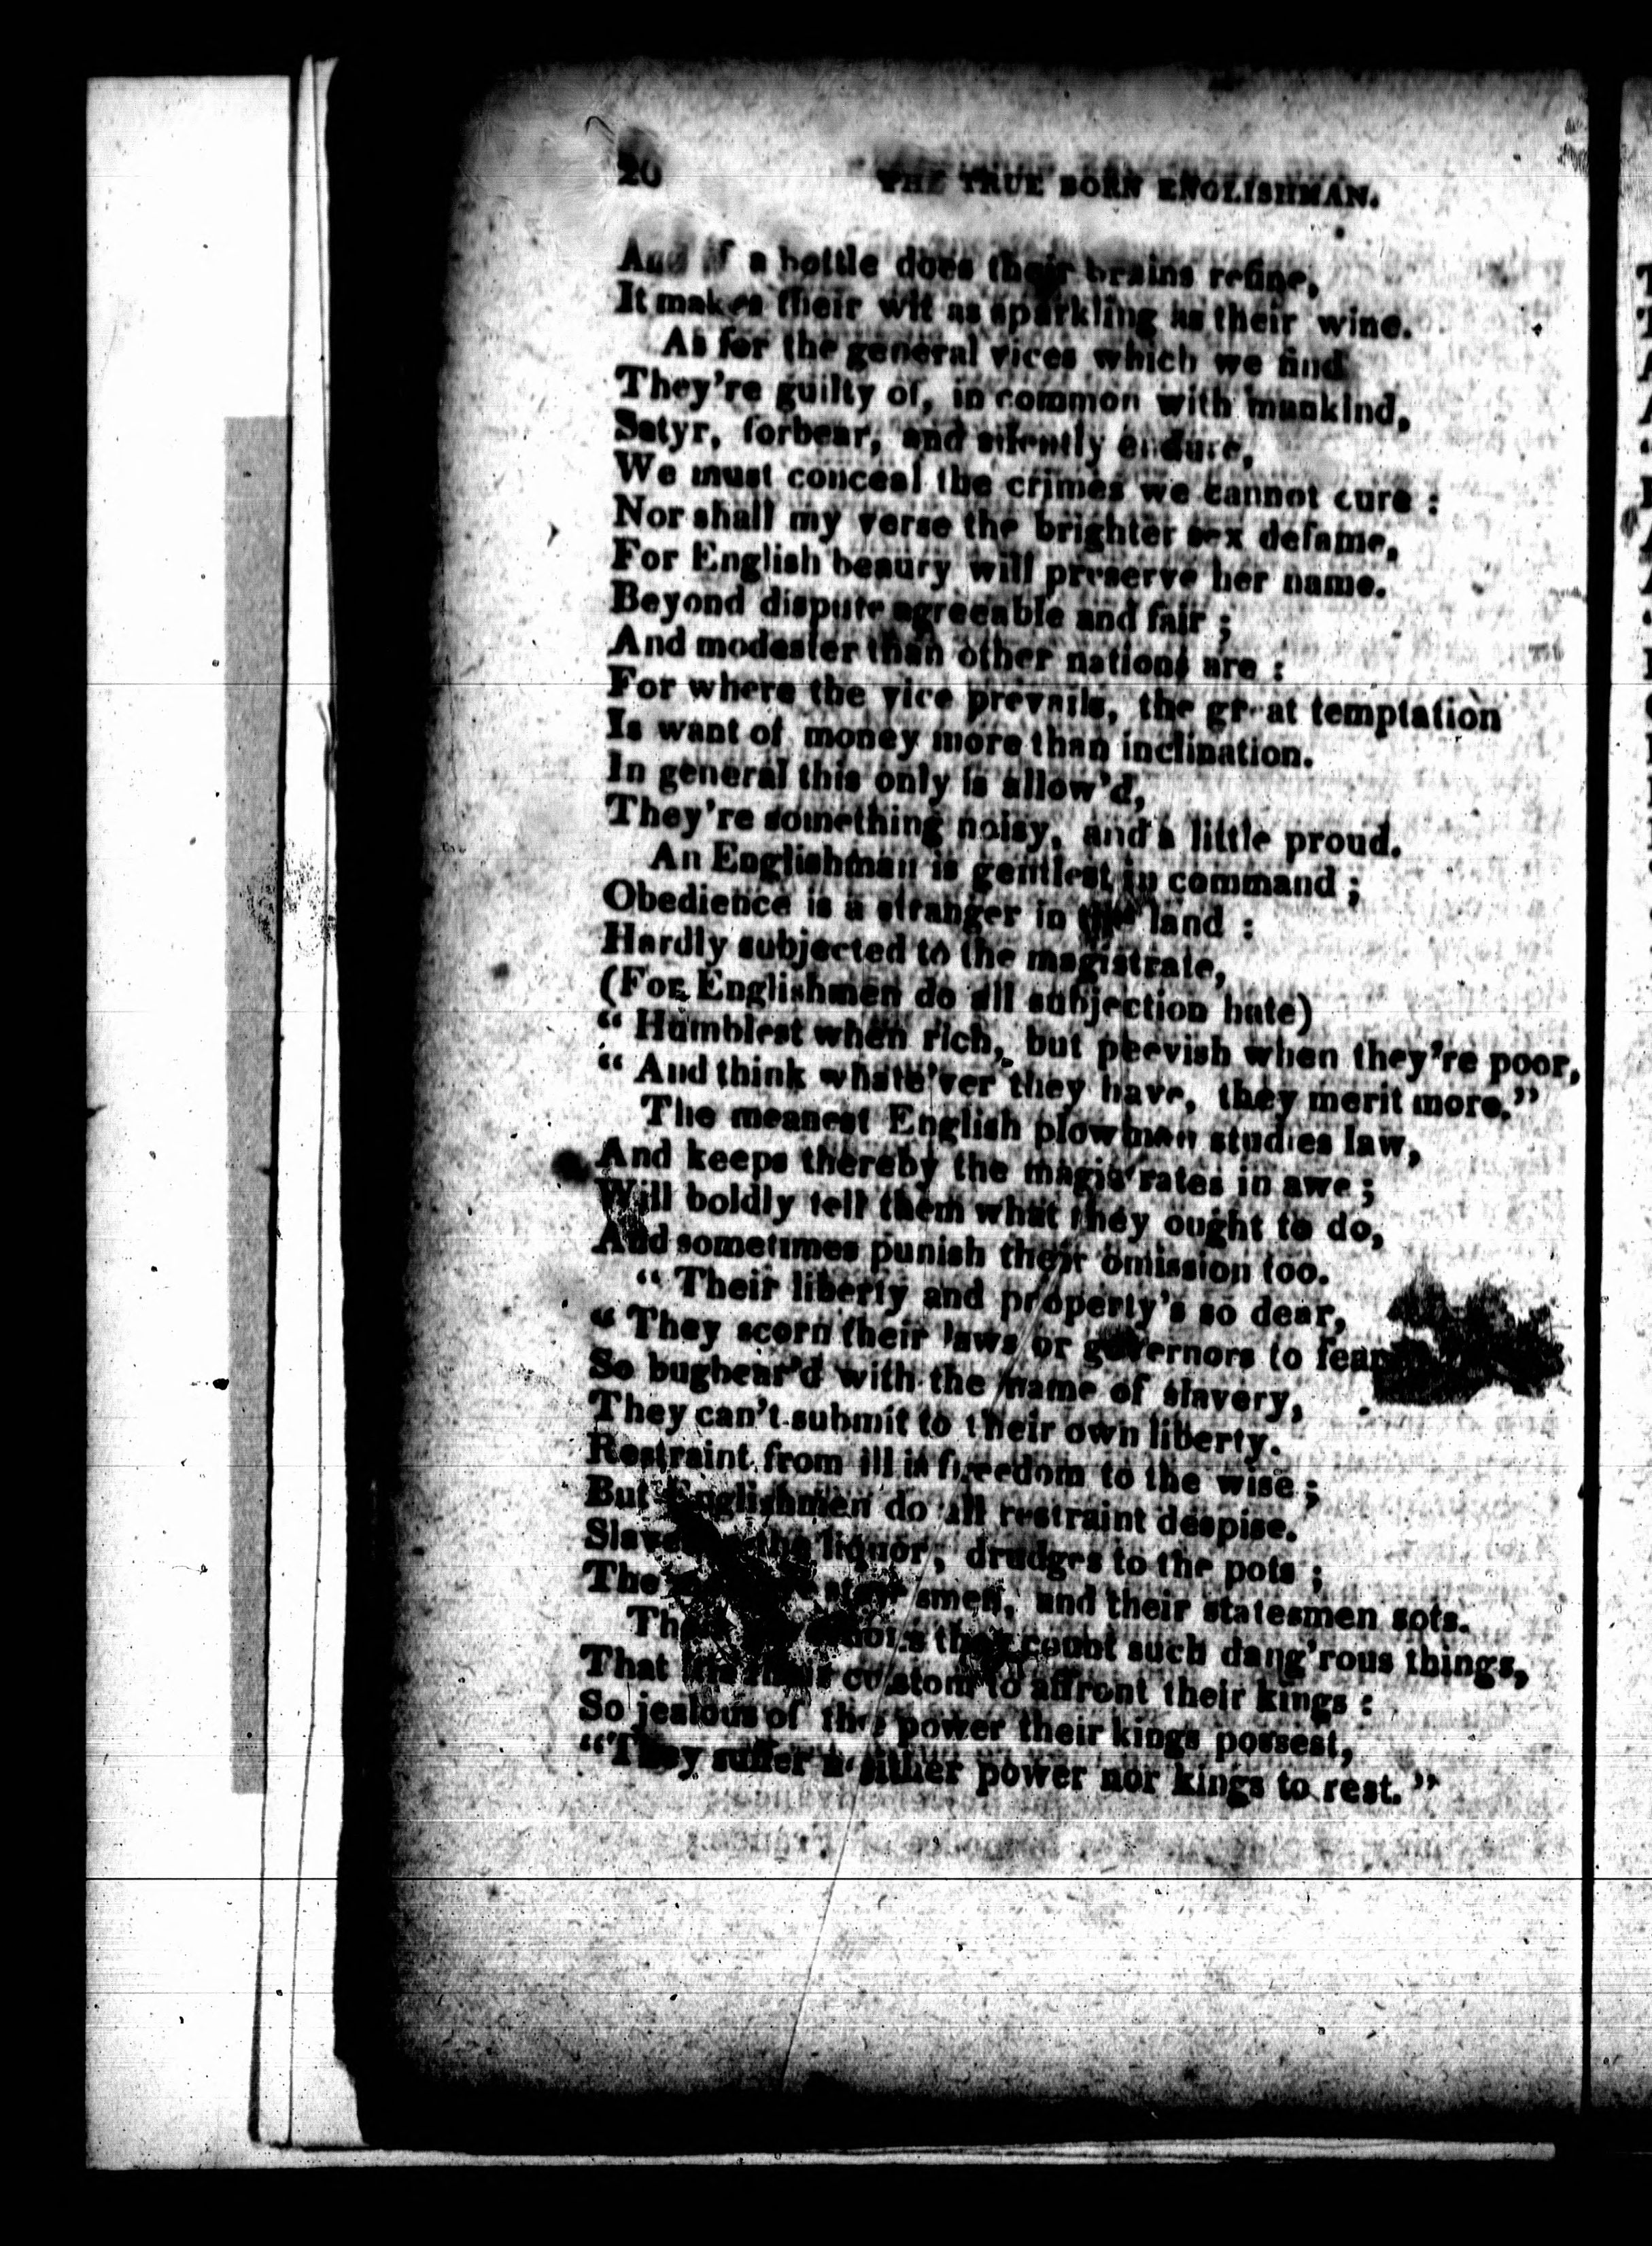 20 THE TRUE BORN ENGLISHMAN.
And if a bottle does their brains refine,
It makes their wit as sparkling as their wine.
As for the general vices which we find
They're guilty of, in common with mankind,
Satyr, forbear, and silently endure,
We must conceal the crimes we cannot cure :
Nor shall my verse the brighter sex defame,
For English beaury will preserve her name.
Beyond dispute agreeable and fair ;
And modester than other nations are :
For where the vice prevails, the great temptation
Is want of money more than inclination.
In general this only is allow'd,
They're something noisy, and a little proud.
An Englishman is gentlest in command ;
Obedience is a stranger in the land :
Hardly subjected to the magistrate,
(For Englishmen do all subjection hate)
“ Humblest when rich, but peevish when they're poor,
“ And think whate'ver they have, they merit more.”
The meanest English plowman studies law,
And keeps thereby the magistrates in awe ;
Will boldly tell them what they ought to do,
And sometimes punish their omission too.
“ Their liberty and property's so dear,
“ They scorn their laws or governors to fear
So bugbear'd with the name of slavery,
They can't submit to their own liberty.
Restraint from ill is freedom to the wise ;
But Englishmen do all restraint despise.
Slaves the liquor, drudges to the pots ;
The smen, and their statesmen sots.
they count such dang'rous things,
That custom to affront their kings :
So jealous of the power their kings possest,
“They suffer neither power nor kings to rest.”